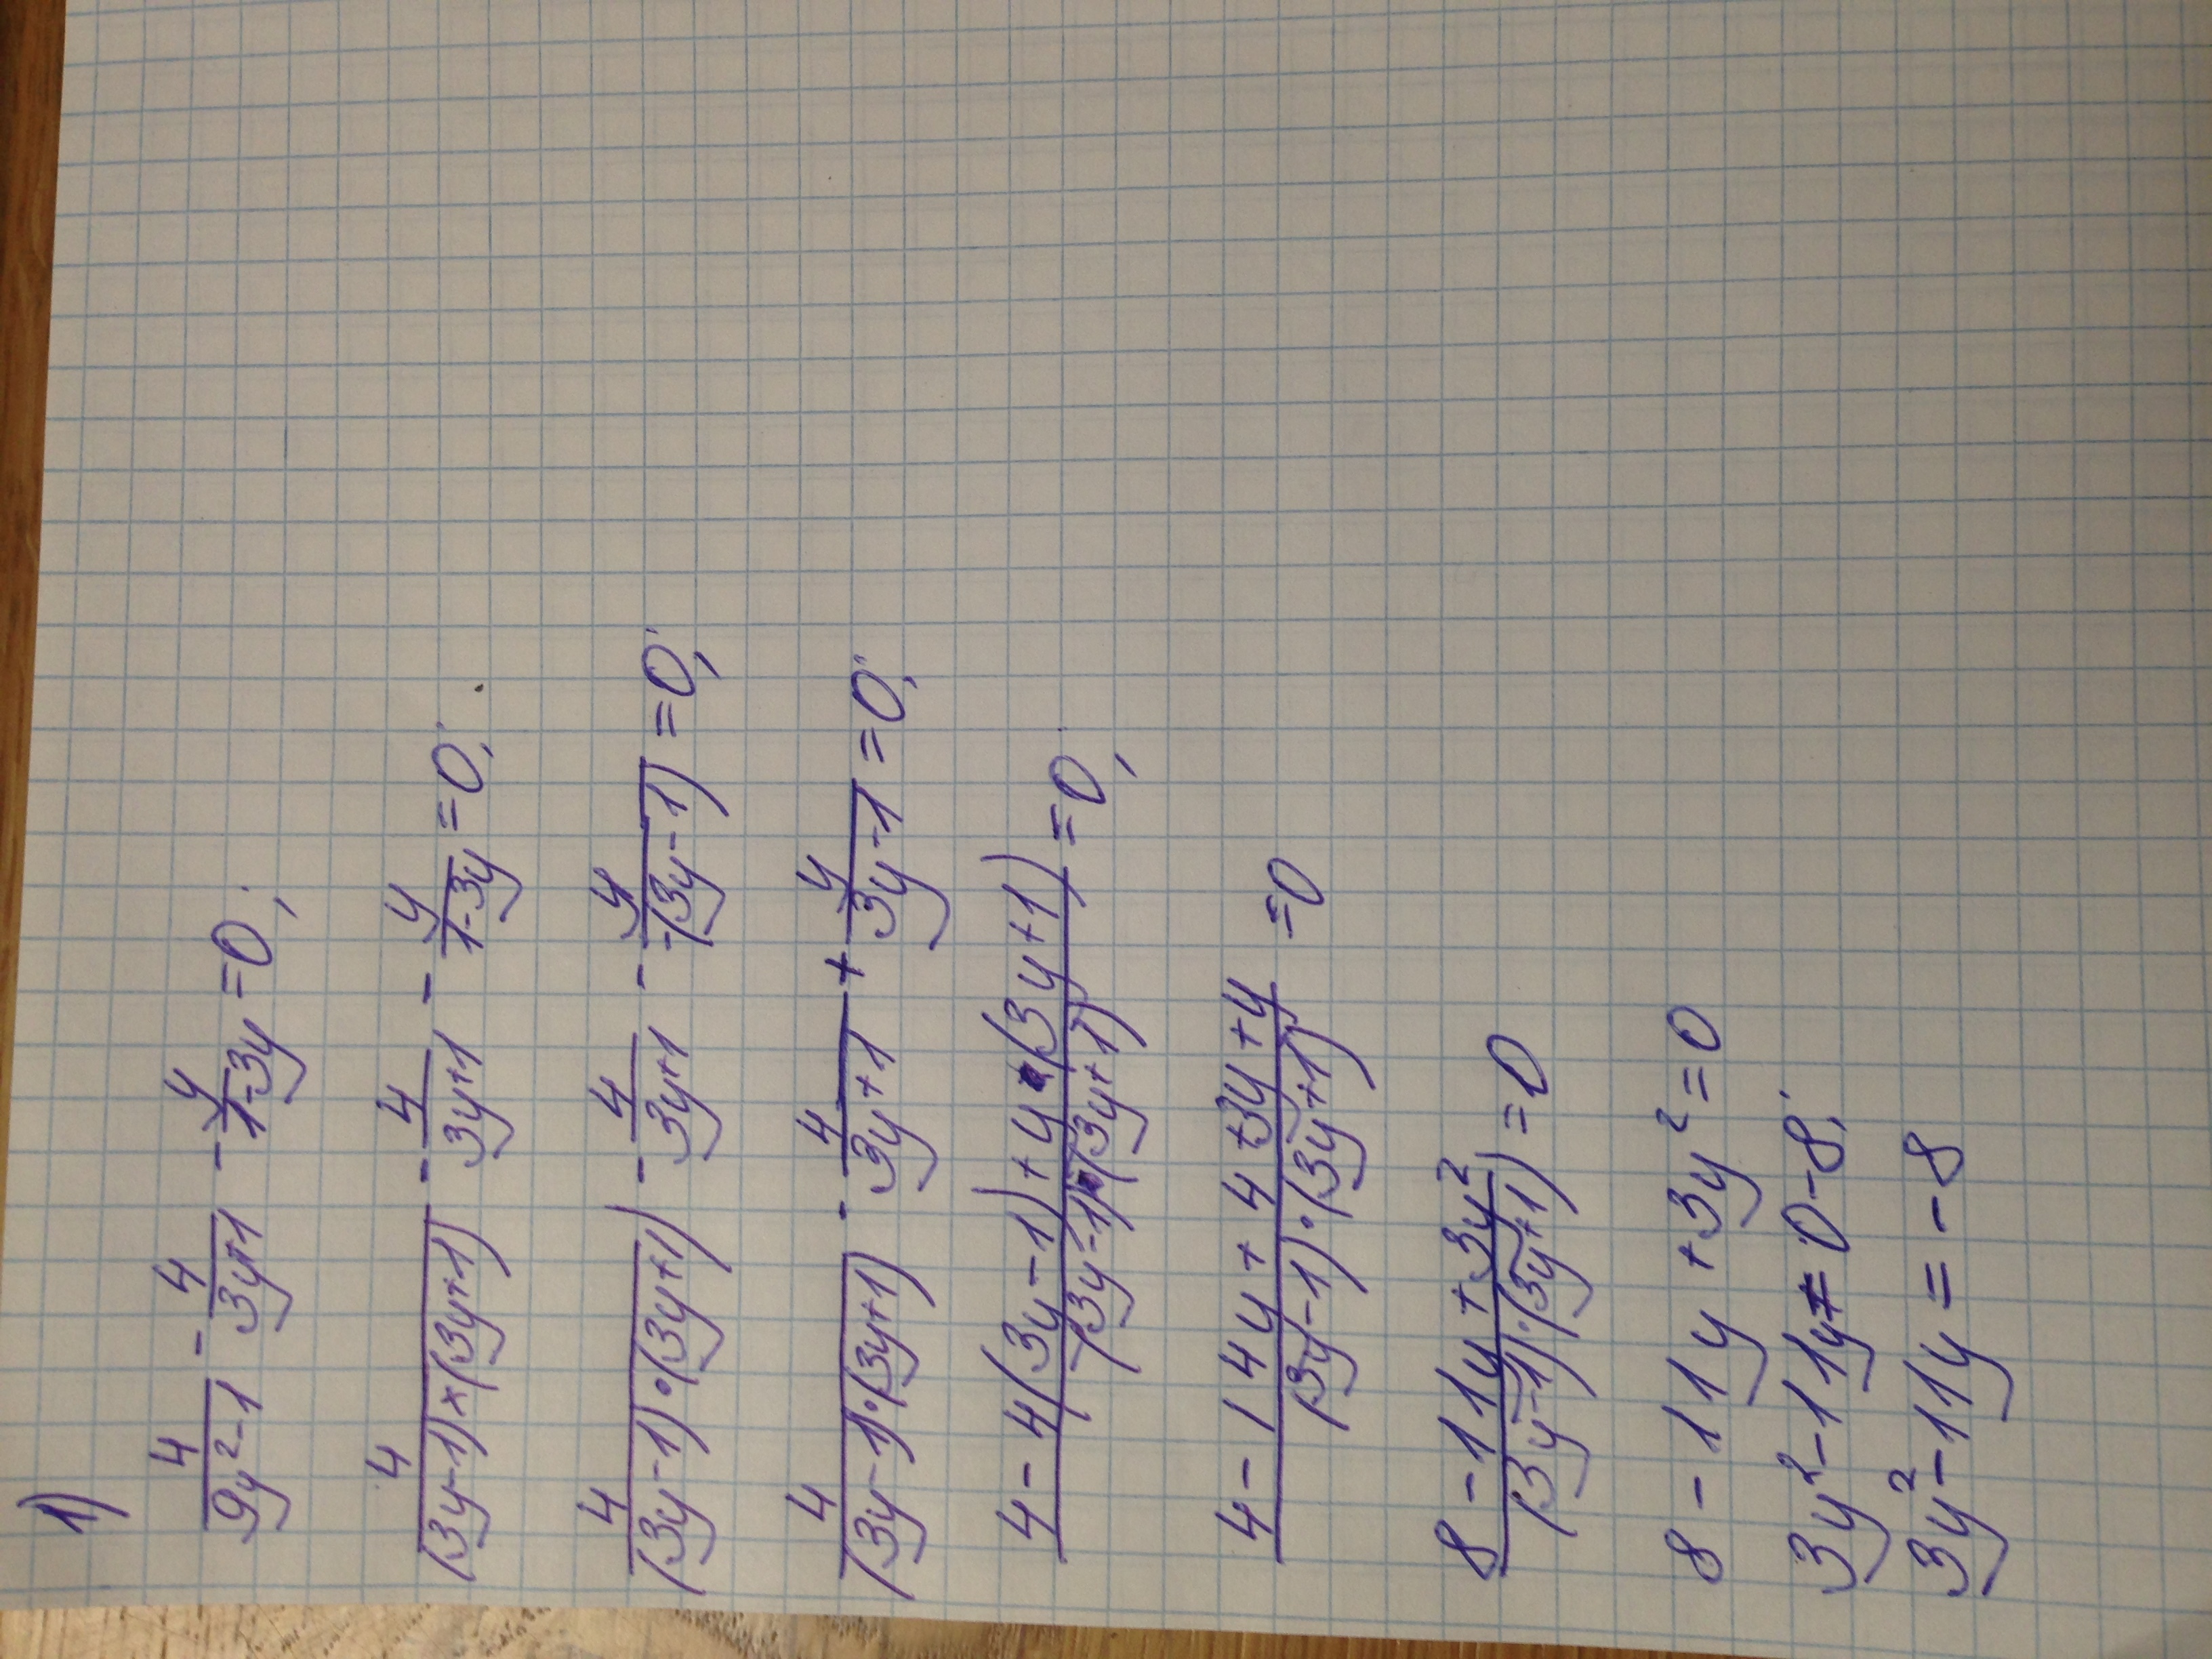 1)
4/(9y²-1) - 4/(3y+1) - y/(1-3y) = 0;
4/((3y-1)×(3y+1)) - 4/(3y+1) - y/(1-3y) = 0;
4/((3y-1)·(3y+1)) - 4/(3y+1) - y/(-(3y-1)) = 0;
4/((3y-1)·(3y+1)) - 4/(3y+1) + y/(3y-1) = 0;
(4-4(3y-1)+y·(3y+1))/((3y-1)·(3y+1)) = 0;
(4-14y+4+3y+y)/((3y-1)·(3y+1)) = 0
(8-11y+3y²)/((3y-1)·(3y+1)) = 0
8-11y+3y²=0
3y²-11y=0-8;
3y²-11y=-8